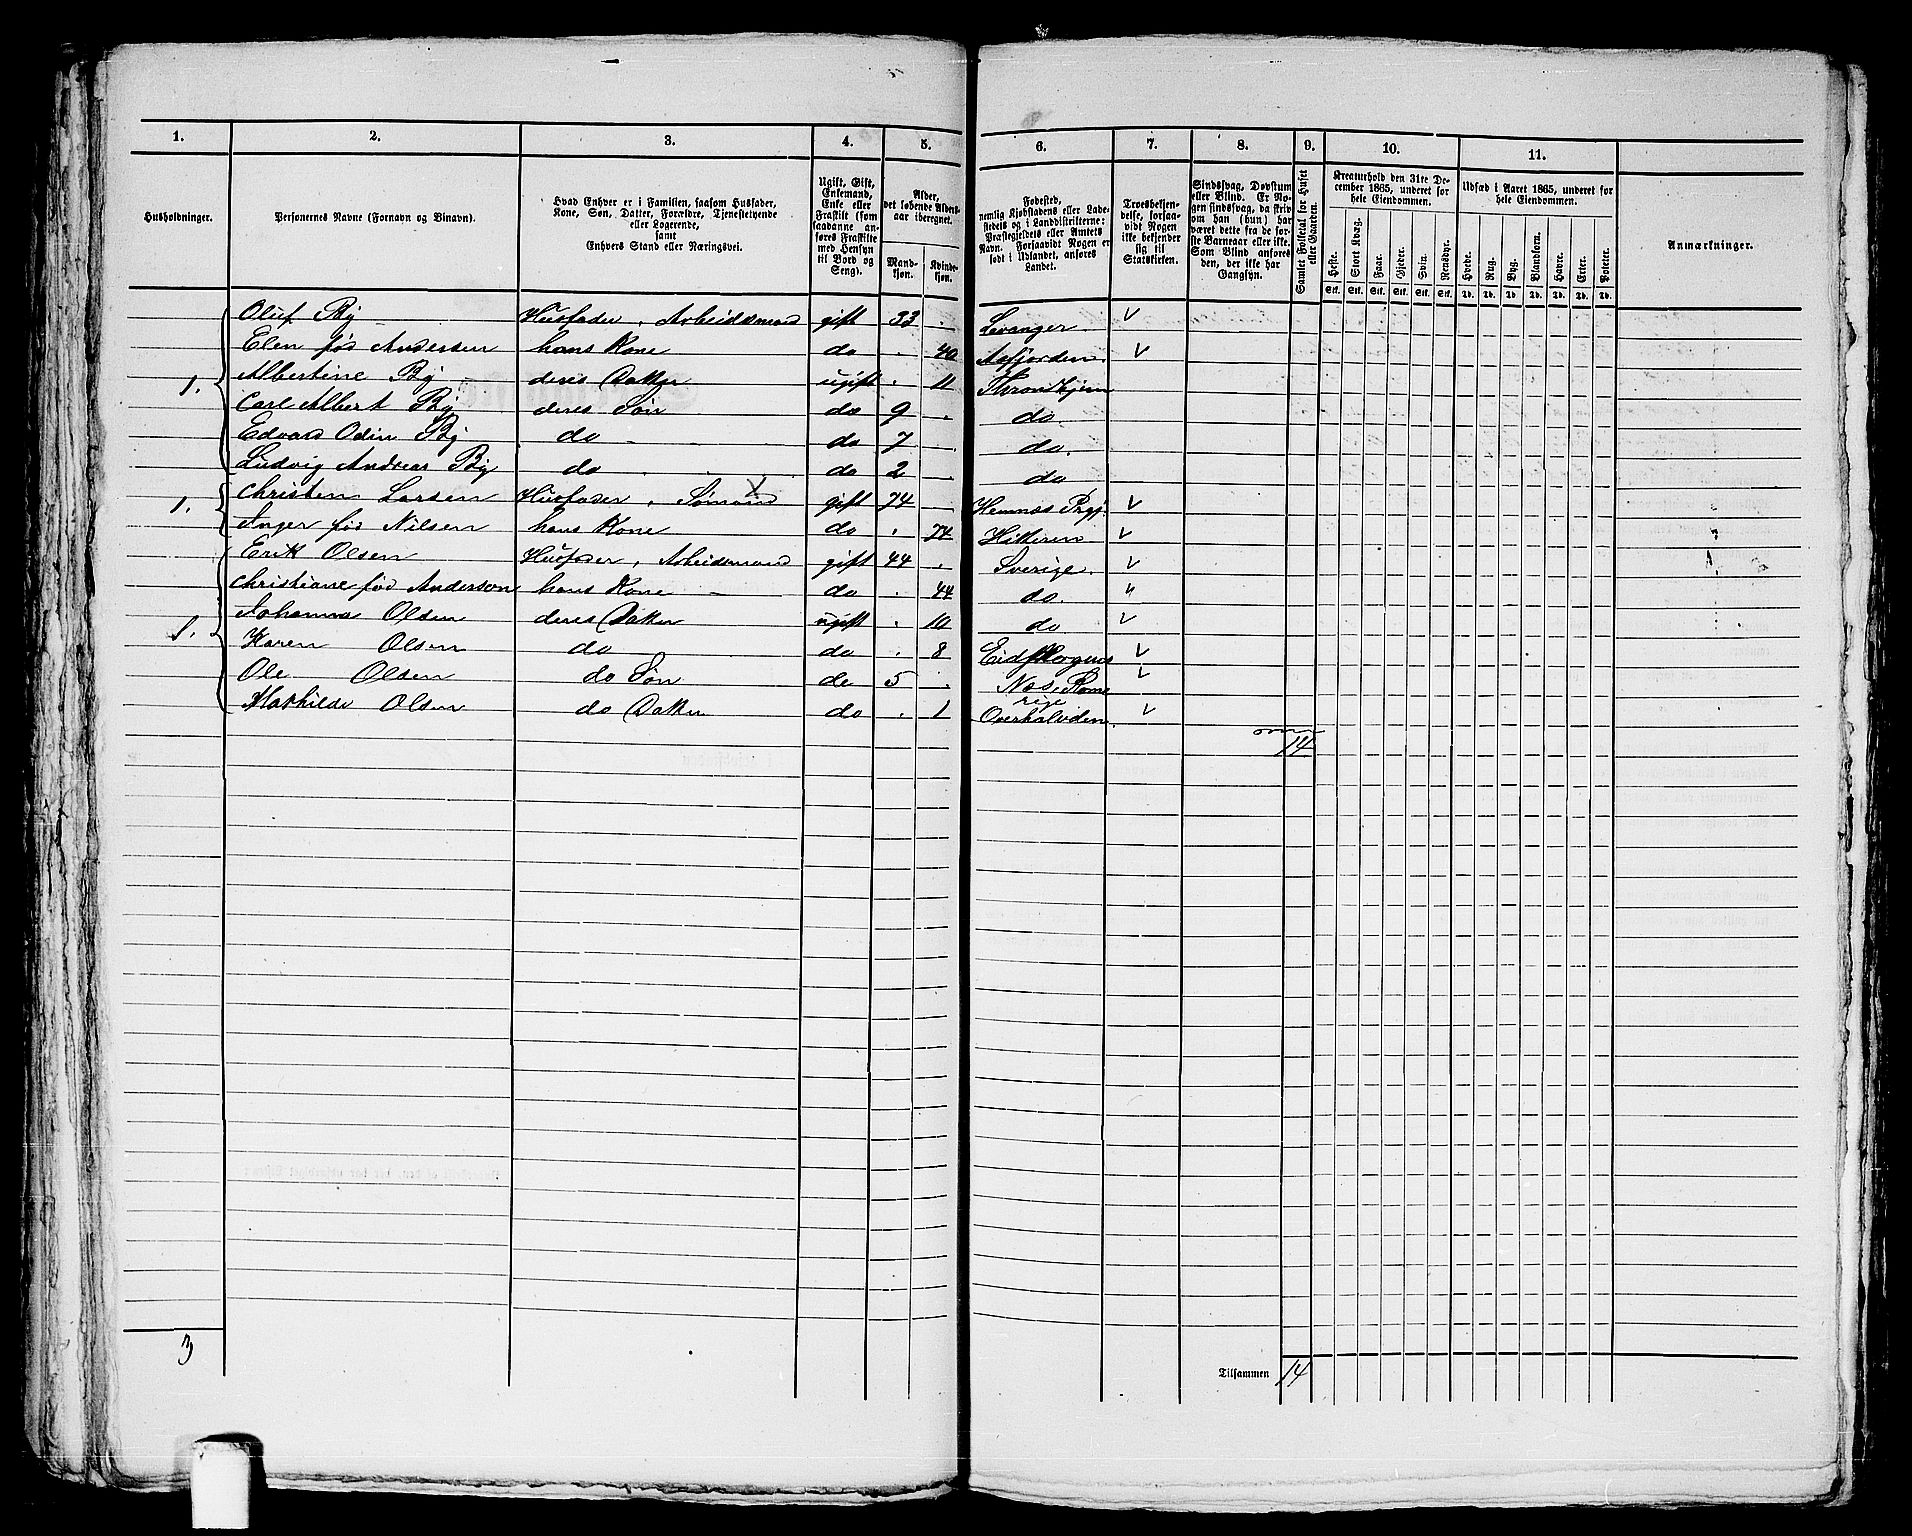 1. 2. 3. 4. 5. 6. 7. 8. 9. 10. 11.
Husholdninger.
Personernes Navne (Fornavn og Binavn).
Hvad Enhver er i Familien, saasom Husfader,
Kone, Søn, Datter, Forældre, Tjenestetyende
eller Logerende,
samt
Enhvers Stand eller Næringsvei.
Ugift, Gift,
Enkemand,
Enke eller
Fraskilt (som
saadanne an-
føres Fraskilte
med Hensyn
til Bord og
Seng).
Alder,
det løbende Alders-
aar iberegnet.
Mand-
kjøn.
Kvinde-
kjøn.
Fødested,
nemlig Kjøbstadens eller Lade-
stedets og i Landdistrikterne:
Præstegjeldets eller Amtets
Navn. Forsaavidt Nogen er
født i Udlandet, anføres
Landet.
Troesbekjen-
delse, forsaa-
vidt Nogen
ikke bekjender
sig til
Statskirken.
Sindssvag, Døvstum
eller Blind. Er No-
gen sindssvag, da skriv
om han (hun) har
været dette fra de før-
ste Barneaar eller ikke.
Som Blind anføres
den, der ikke har
Gangsyn.
Samlet Folketal for Huset
eller Gaarden.
Kreaturhold den 31te De-
cember 1865, underet for
hele Eiendommen.
Heste. Stort Kvæg. Faar. Gjeder. Svin. Rensdyr.
Stk. Stk. Stk. Stk. Stk. Stk.
Udsæd i Aaret 1865, underet for
hele Eiendommen.
Hvede. Rug. Byg. Blandkorn. Havre. Erter. Poteter.
Td. Td. Td. Td. Td. Td. Td.
Anmærkninger.
Oluf By Husfader, Arbeidsmand gift 33 . Levanger
Elen fød Andersen hans Kone do . 40 Aafjorden
1. Albertine By deres Datter ugift . 11 Throndhjem
Carl Albert By deres Søn do 9 . do
Edvard Odin By do do 7 do.
Ludvig Andreas By do do 2 . do
1. Christen Larsen Husfader, Sømand gift 74 Hemnæs Prgj.
Inger fød Nilsen hans Kone do . 74 Hitteren
Erik Olsen Husfader, Arbeidsmand gift 44 . Sverige.
Christiane fød Anderson hans Kone do . 44 do.
1. Johanna Olsen deres Datter ugift . 10 do
Karen Olsen do do . 8
Ole Olsen do Søn do 5 . Næs, Rome
rige
Mathilde Olsen do Datter do . 1 Overhalvden
14
3
Tilsammen 14